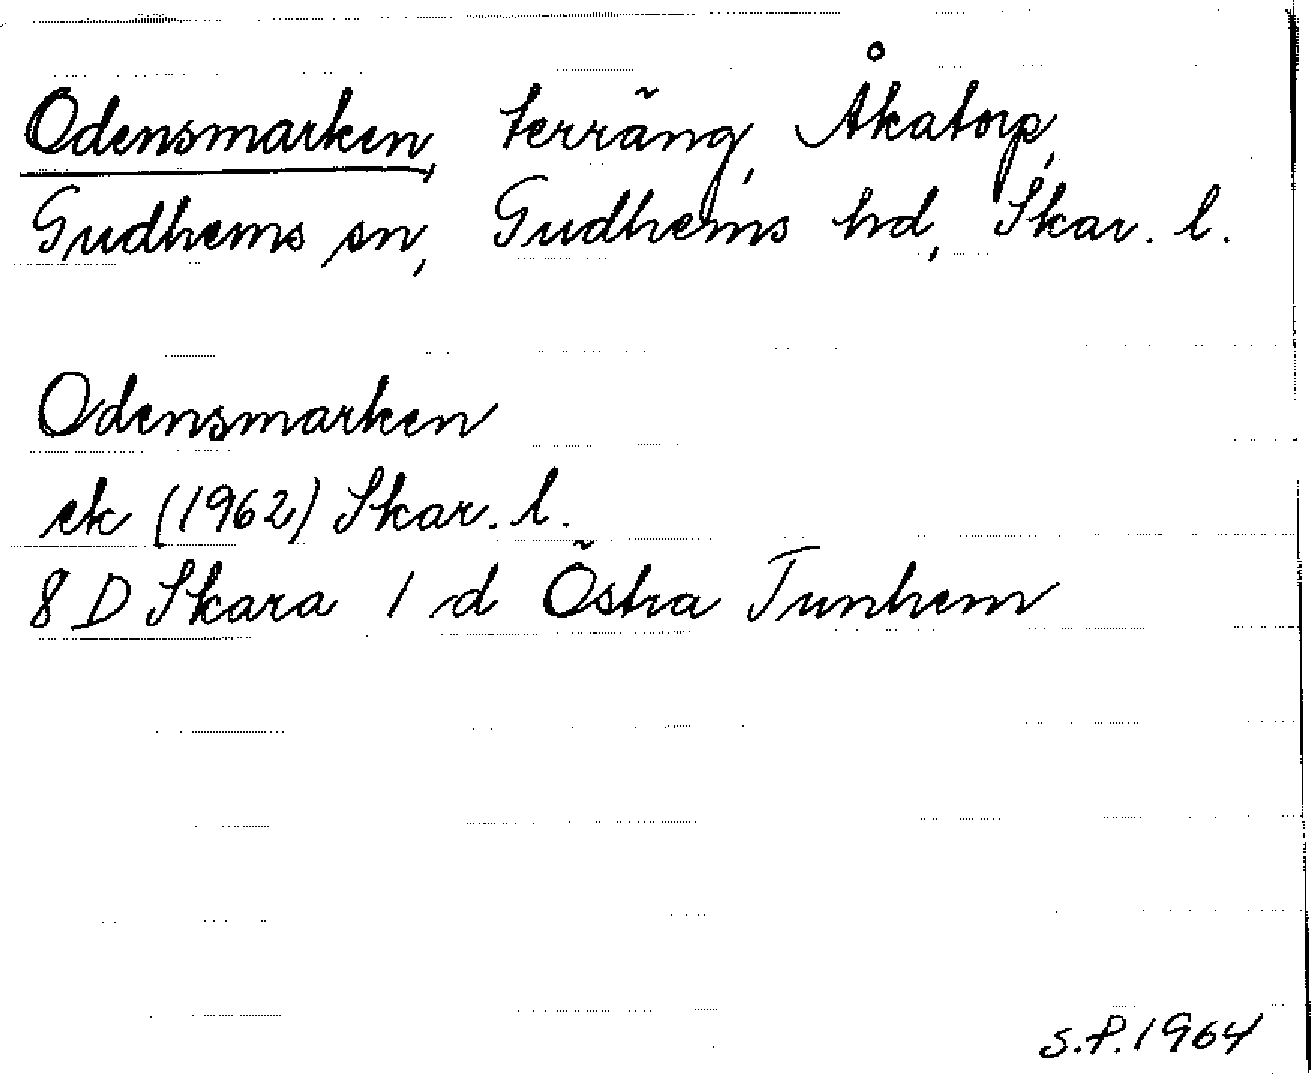 Odensmarken, terräng, Åkatorp,
Gudhems sn, Gudhems hd, Skar. l.
Odensmarken
ek (1962) Skar. l.
8 D Skara 1 d Östra Tunhem
S.P. 1964